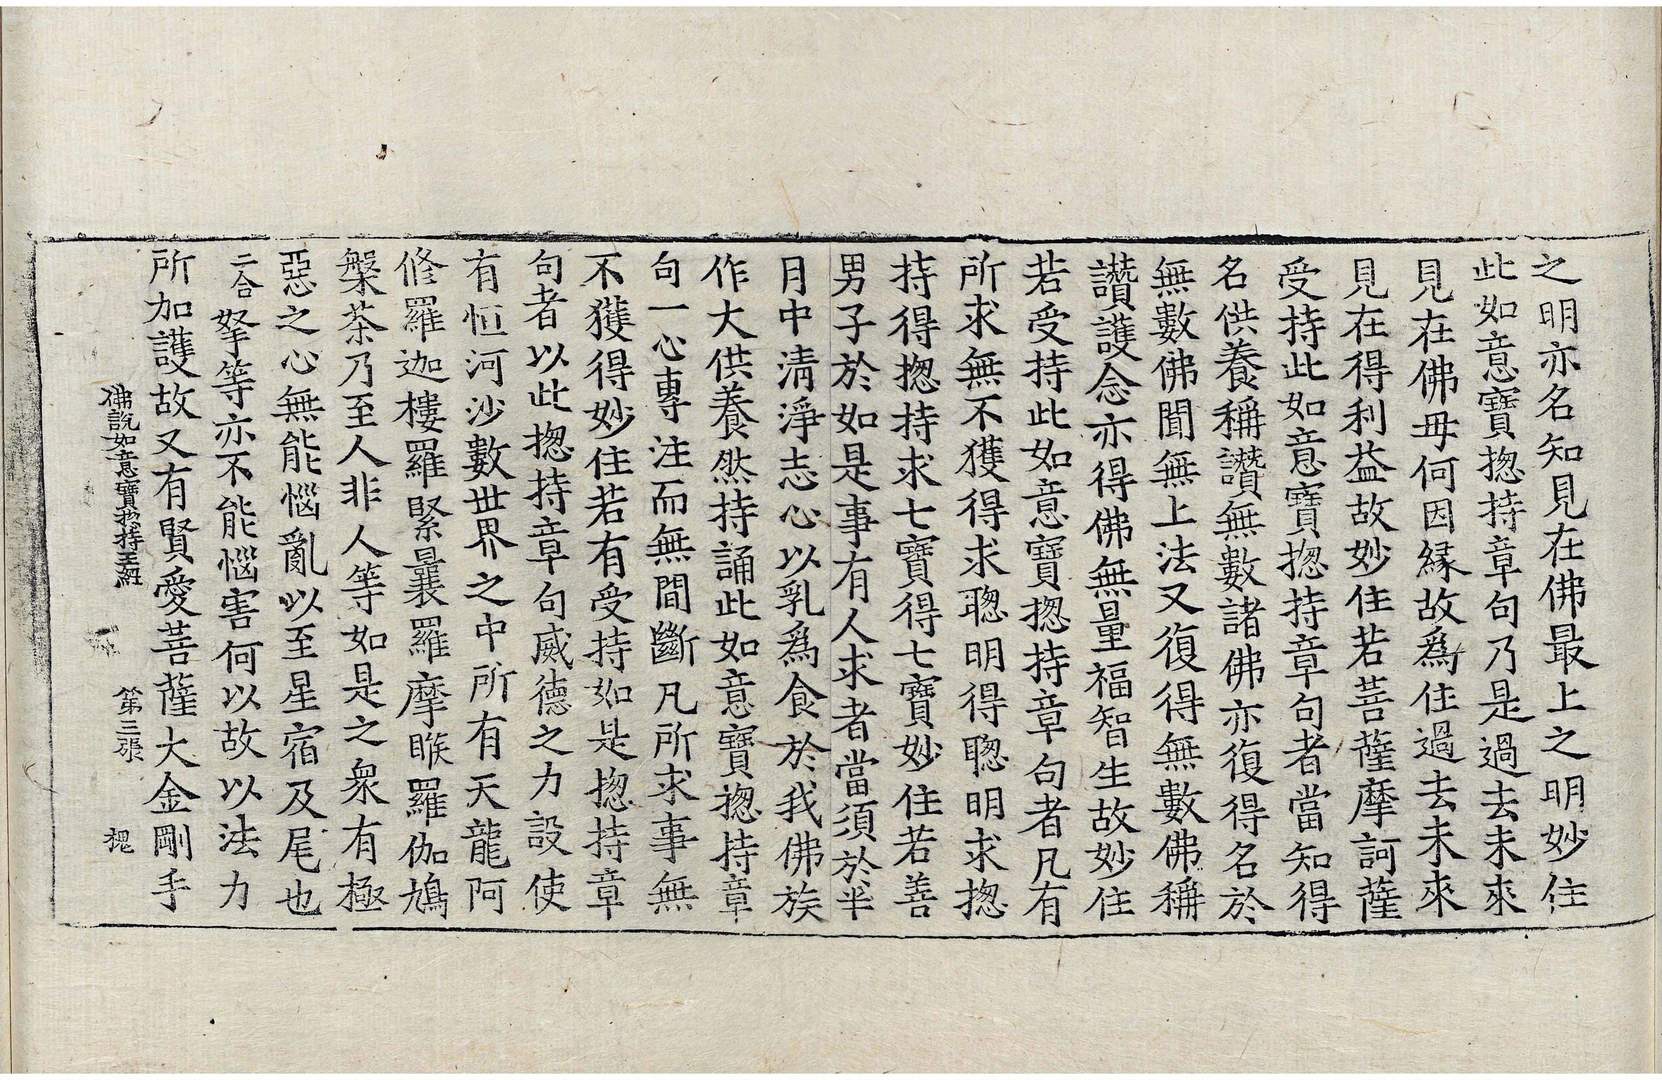 之明亦名知見在佛最上之明妙住
此如意寶揔持章句乃是過去未來
見在佛毋何因緣故爲住過去未來
見在得利益故妙住若菩薩摩訶薩
受持此如意寶揔持章句者當知得
名供養稱讚無數諸佛亦復得名於
無數佛聞無上法又復得無數佛稱
讚護念亦得佛無量福智生故妙住
若受持此如意寶揔持章句者凡有
所求無不獲得求聦明得聦明求揔
持得揔持求七寶得七寶妙住若善
男子於如是事有人求者當須於半
月中清淨志心以乳爲食於我佛族
作大供養然持誦此如意寶揔持章
句一心專注而無間斷凡所求事無
不獲得妙住若有受持如是揔持章
句者以此揔持章句威德之力設使
有恒河沙數世界之中所有天龍阿
修羅迦樓羅緊曩羅摩睺羅伽鳩
槃茶乃至人非人等如是之衆有極
惡之心無能惱亂以至星宿及尾也
二合拏等亦不能惱害何以故以法力
所加護故又有賢愛菩薩大金剛手
佛說如意寶揔持王經 第三張 槐